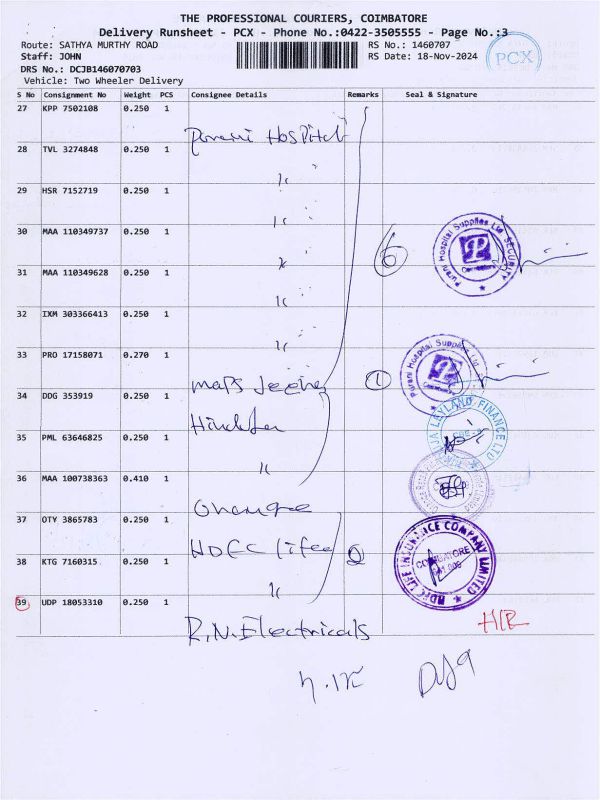 THE PROFESSIONAL COURIERS, COIMBATORE
Delivery Runsheet - PCX - Phone No.:0422-3505555 - Page No.:3
Route: SATHYA MURTHY ROAD
RS No.: 1460707
Staff: JOHN
RS Date: 18-Nov-2024
DRS No.: DCJB146070703
Vehicle: Two Wheeler Delivery
PCX
S No Consignment No Weight PCS Consignee Details Remarks Seal & Signature
27 KPP 7502108 0.250 1
Purani Hospital
28 TVL 3274848 0.250 1
29 HSR 7152719 0.250 1
30 MAA 110349737 0.250 1
6
Purani Hospital Supplies Ltd SECURITY
31 MAA 110349628 0.250 1
32 IXM 303366413 0.250 1
33 PRO 17158071 0.270 1
1
Purani Hospital Supplies
34 DDG 353919 0.250 1
Hinduja
LEYLAND FINANCE LTD
35 PML 63646825 0.250 1
36 MAA 100738363 0.410 1
37 OTY 3865783 0.250 1
HDFC life
HDFC LIFE INSURANCE COMPANY LIMITED
COIMBATORE
38 KTG 7160315 0.250 1
39 UDP 18053310 0.250 1
R.N. Electricals